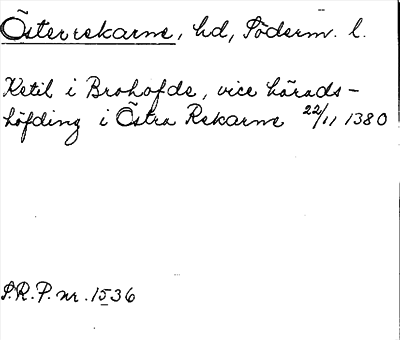 Österrekarne, hd, Söderm. l.
Ketil i Brohofde, vice härads-
höfding i Östra Rekarne 22/11 1380
S.R.P. nr. 1536